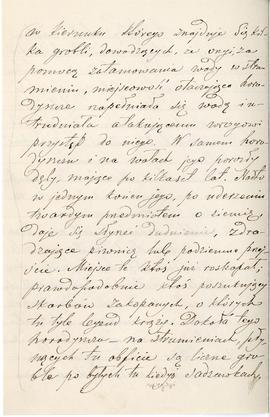 w kierunku którego znajduje się kil-
ka grobli, dowodzących, że onyi, za
pomocą zatamowania wody w stru
mieniu, miejscowość otaczająca horo-
dyszcze napełniała się wodą i u-
trudniała atakującemu wrogowi
przystęp do niego. W samem horo
dyszczu i na wałach jego porosły
dęby, mające po kilkaset lat. Nadto
w jednym końcu jego, po uderzeniu
twardym przedmiotem o ziemię
daje się słyszeć dudnienie, zdra-
dzające piwnicę lub podziemne przej-
ście. Miejsce te ktoś już rozkopał;
prawdopodobnie ktoś poszukujący
skarbów zakopanych, o których
tu tyle legend krąży. Dokoła tego
horodyszcza — na strumieniach, pły-
nących tu obficie są liczne gro-
ble po byłych tu kiedyś sadzawkach,